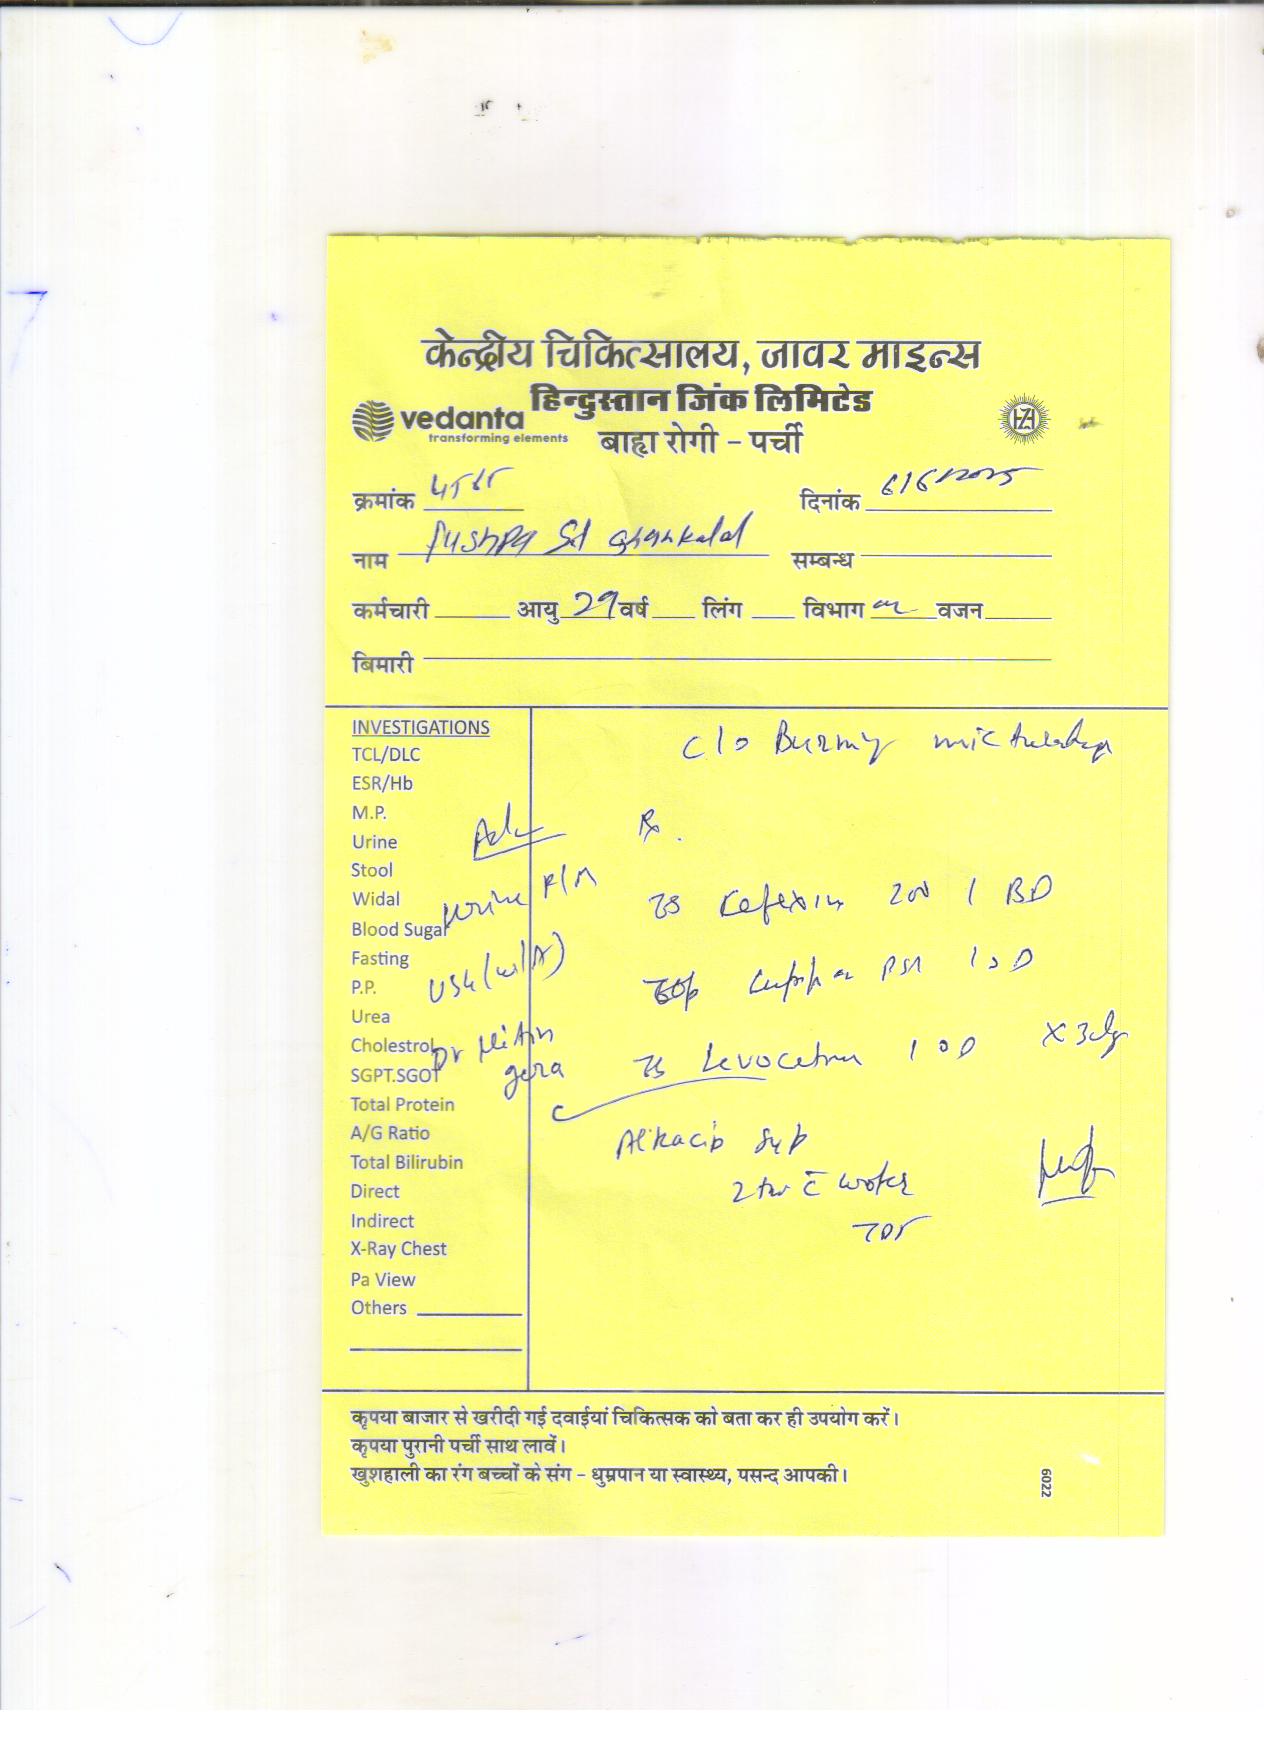 केन्द्रीय चिकित्सालय, जावर माइन्स
हिन्दुस्तान जिंक लिमिटेड
vedanta
transforming elements
बाह्य रोगी - पर्ची
क्रमांक दिनांक 6/6/2025
नाम Pushpa सम्बन्ध
कर्मचारी आयु 29 वर्ष लिंग विभाग वजन
बिमारी
INVESTIGATIONS
TCL/DLC
ESR/Hb
M.P.
Urine
Stool
Widal
Blood Sugar
Fasting
P.P.
Urea
Cholestrol
SGPT.SGOT
Total Protein
A/G Ratio
Total Bilirubin
Direct
Indirect
X-Ray Chest
Pa View
Others
Adv
Urine R/M
USG (W/A)
Dr Nitin
gera
c/o Burning micturation
Rx.
200 1 BD
1 OD
Levocetra 1 OD x 3dy
Alkacip Syp
2 tsf c̄ water
TDS
कृपया बाजार से खरीदी गई दवाईयां चिकित्सक को बता कर ही उपयोग करें।
कृपया पुरानी पर्ची साथ लावें।
खुशहाली का रंग बच्चों के संग - धुम्रपान या स्वास्थ्य, पसन्द आपकी।
6022